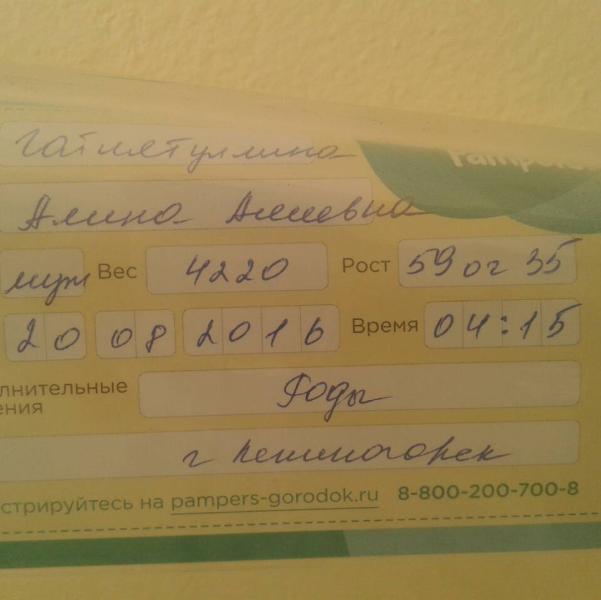 Pampers
Гатиятуллина
Алина Алиевна
муж Вес 4220 Рост 59 ог 35
20 08 2016 Время 04:15
лнительные
ения Роды
г Лениногорск
стрируйтесь на pampers-gorodok.ru 8-800-200-700-8